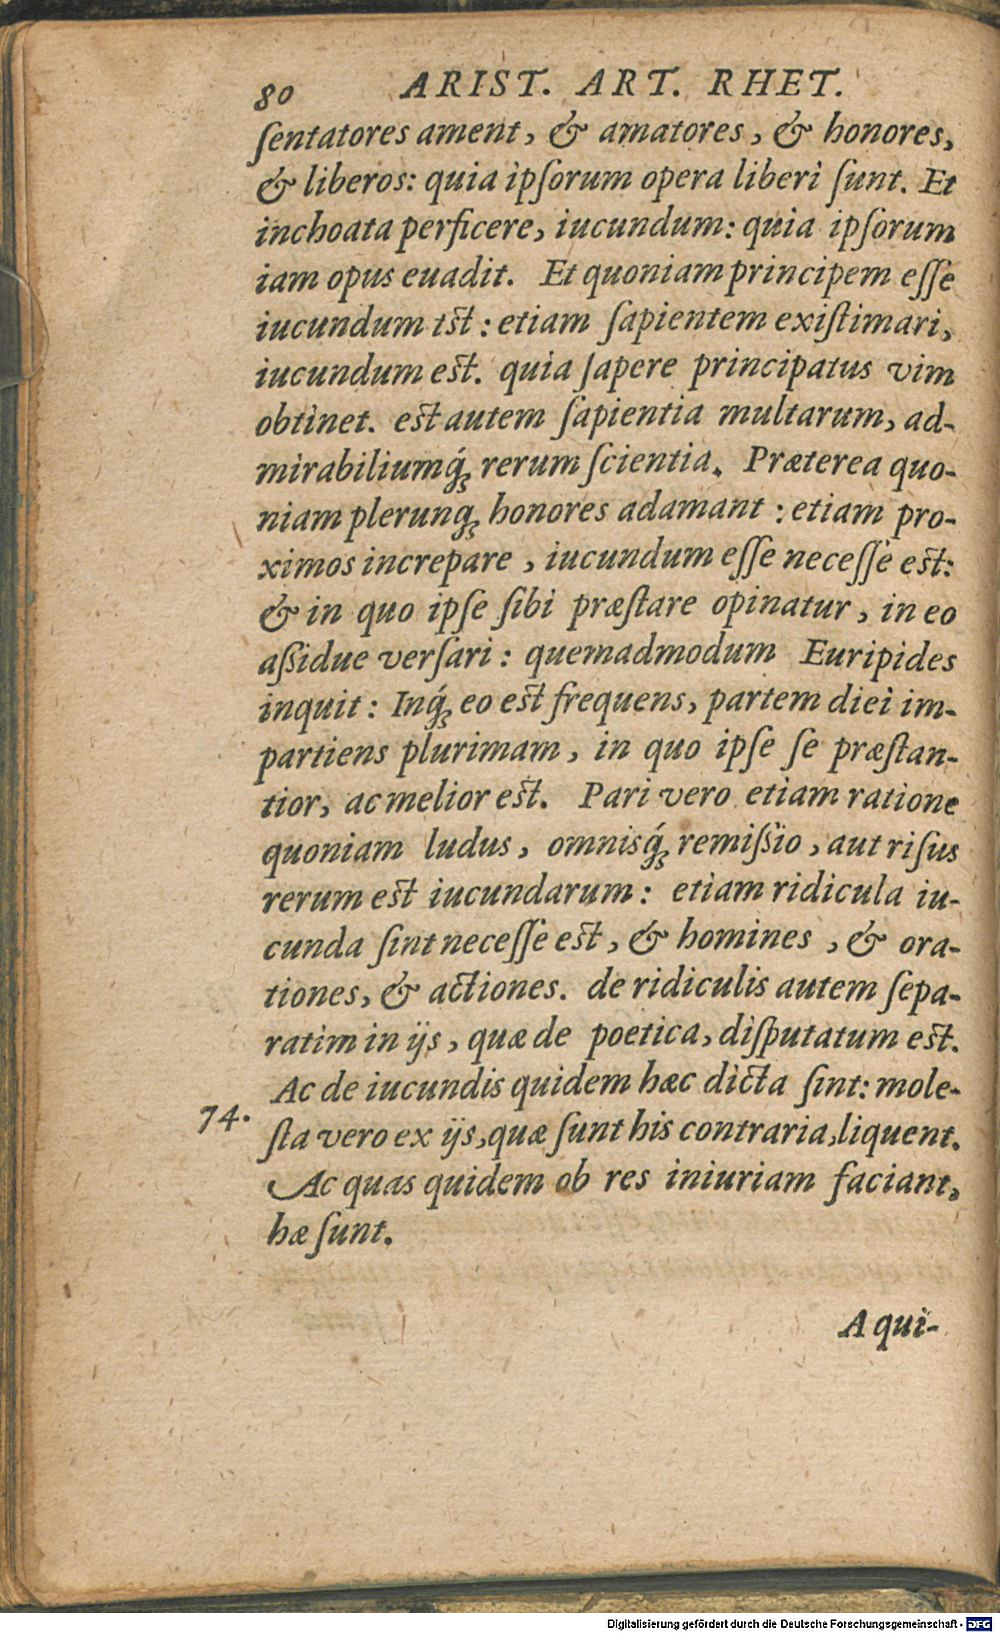 80 ARIST. ART. RHET.
ſentatores ament, & amatores, & honores,
& liberos: quia ipſorum opera liberi ſunt. Et
inchoata perficere, iucundum: quia ipſorum
iam opus euadit. Et quoniam principem eſſe
iucundum tst: etiam ſapientem exiſtimari,
iucundum est. quia ſapere principatus vim
obtinet. est autem ſapientia multarum, ad-
mirabiliumq́ꝫ rerum ſcientia. Præterea quo-
niam plerunqꝫ honores adamant: etiam pro-
ximos increpare, iucundum eſſe neceſſe est:
& in quo ipſe ſibi præſtare opinatur, in eo
aſsidue verſari: quemadmodum Euripides
inquit: Inq́ꝫ eo est frequens, partem diei im-
partiens plurimam, in quo ipſe ſe præſtan-
tior, ac melior est. Pari vero etiam ratione
quoniam ludus, omnisq́ꝫ remiſsio, aut riſus
rerum est iucundarum: etiam ridicula iu-
cunda ſint neceſſe est, & homines, & ora-
tiones, & actiones. de ridiculis autem ſepa-
ratim in ijs, quæ de poetica, diſputatum est.
Ac de iucundis quidem hæc dicta ſint: mole-
74. ſta vero ex ijs, quæ ſunt his contraria, liquent.
Ac quas quidem ob res iniuriam faciant,
hæ ſunt.
A qui-
Digitalisierung gefördert durch die Deutsche Forschungsgemeinschaft - DFG